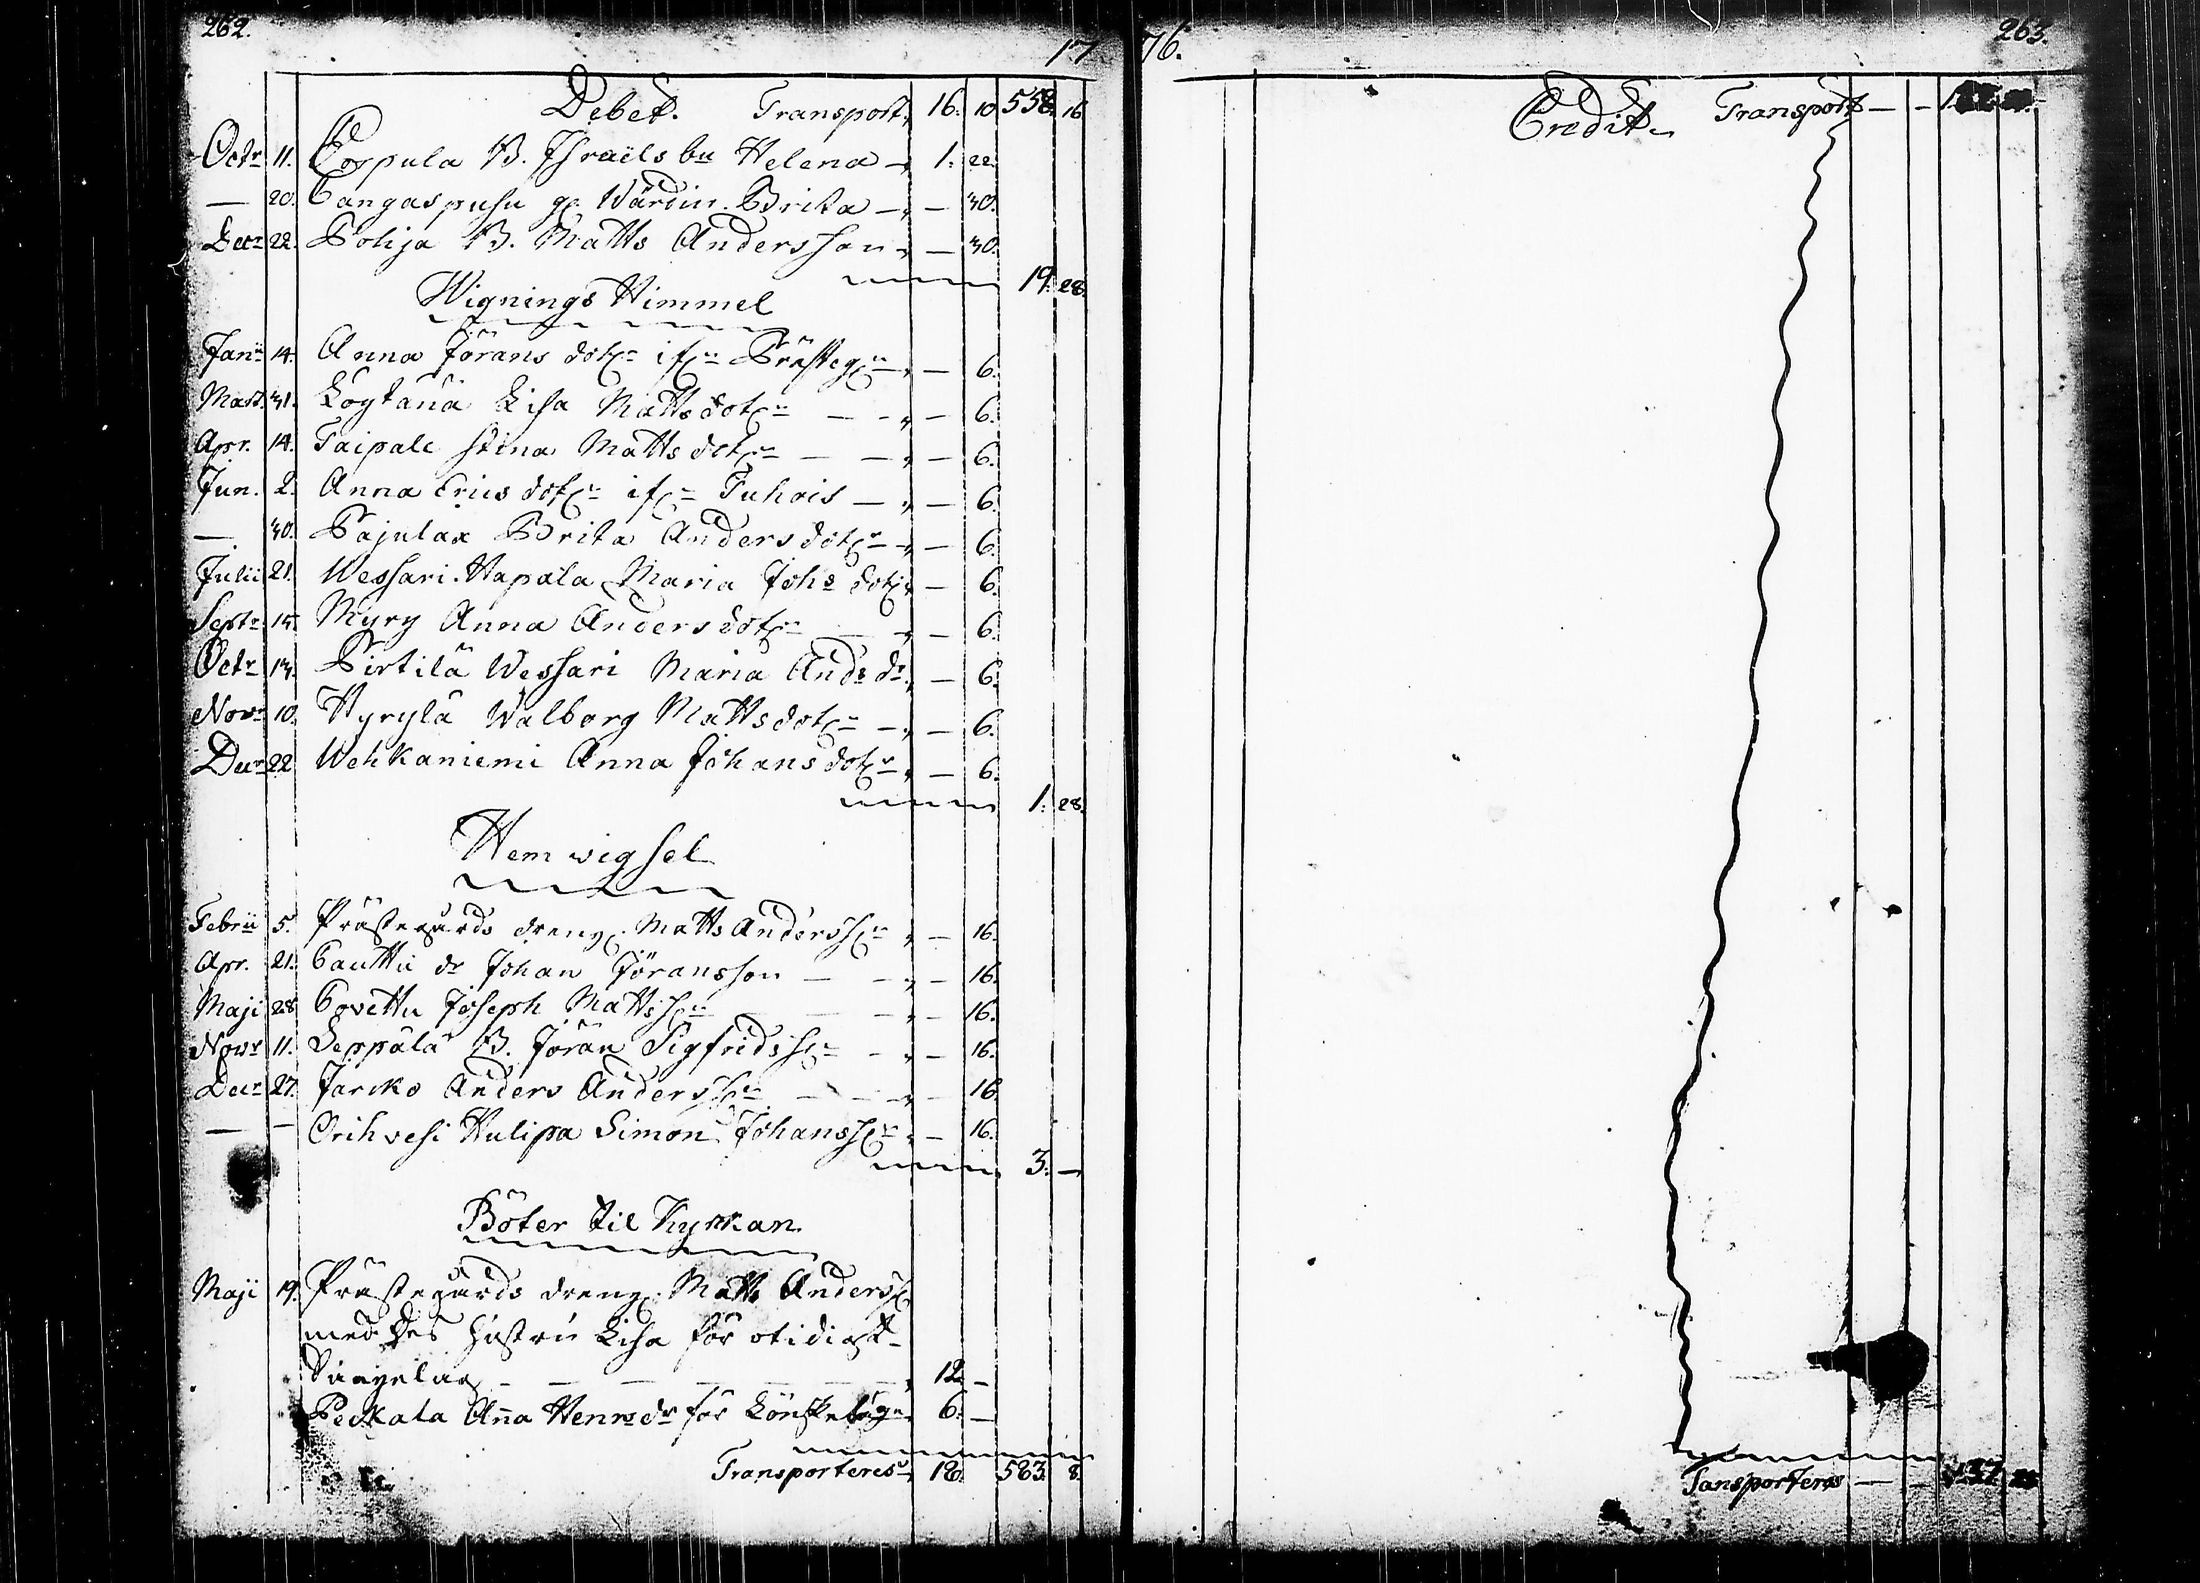 262.
17
Debet. Transport, 16. 10 558. 16
Octr 11. Corpula B. Israëls bu Helena — 1. 22.
— 20. Cangaspusu gl. Wärdin. Brita — — 30.
Decr 22. Pohja B. Matts Andersson — 30.
19. 28.
Wignings Himmel
Janii 14. Anna Jörans dotr Prästeg — 6.
Mart. 31. Lögtänä Lisa Matts dotr — 6.
Apr. 14. Taipale Stina Matts dotr — 6.
Jun. 2. Anna Erics dotr Tuhois — 6.
— 30. Pajulax Brita Anders dotr — 6.
Julii 21. Wessari Hapala Maria Johs dotr — 6.
Septr 15. Myry Anna Anders dotr — 6.
Octr 13. Pirtilä Wessari Maria Ands dr — 6.
Novr 10. Hyrylä Walborg Matts dotr — 6.
Decr 22 Wehkaniemi Anna Johans dotr — 6.
1. 28.
Hem wigsel
Febrii 5. Prästegårds dreng. Matts Anderss — 16.
Apr. 21. Cauttu dr Johan Jöransson — 16.
Maji 28 Covettu Joseph Mattss — 16.
Novr 11. Leppälä B. Jöran Sigfridss — 16.
Decr 27. Jarcko Anders Anderss — 16.
— — Orihvesi Hulipa Simon Johanss — 16.
3. —
Böter til Kyrkan
Maji 19. Prästegårds dreng. Matts Anderss
med des hustru Lisa för otidigt
Sängelag — 12. —
Peckala Aña Henrs dr för Lönskeläge 6. —
Transporteres 18. 583. 8.
76.
263.
Credit Transport — —
Tansporteres — —